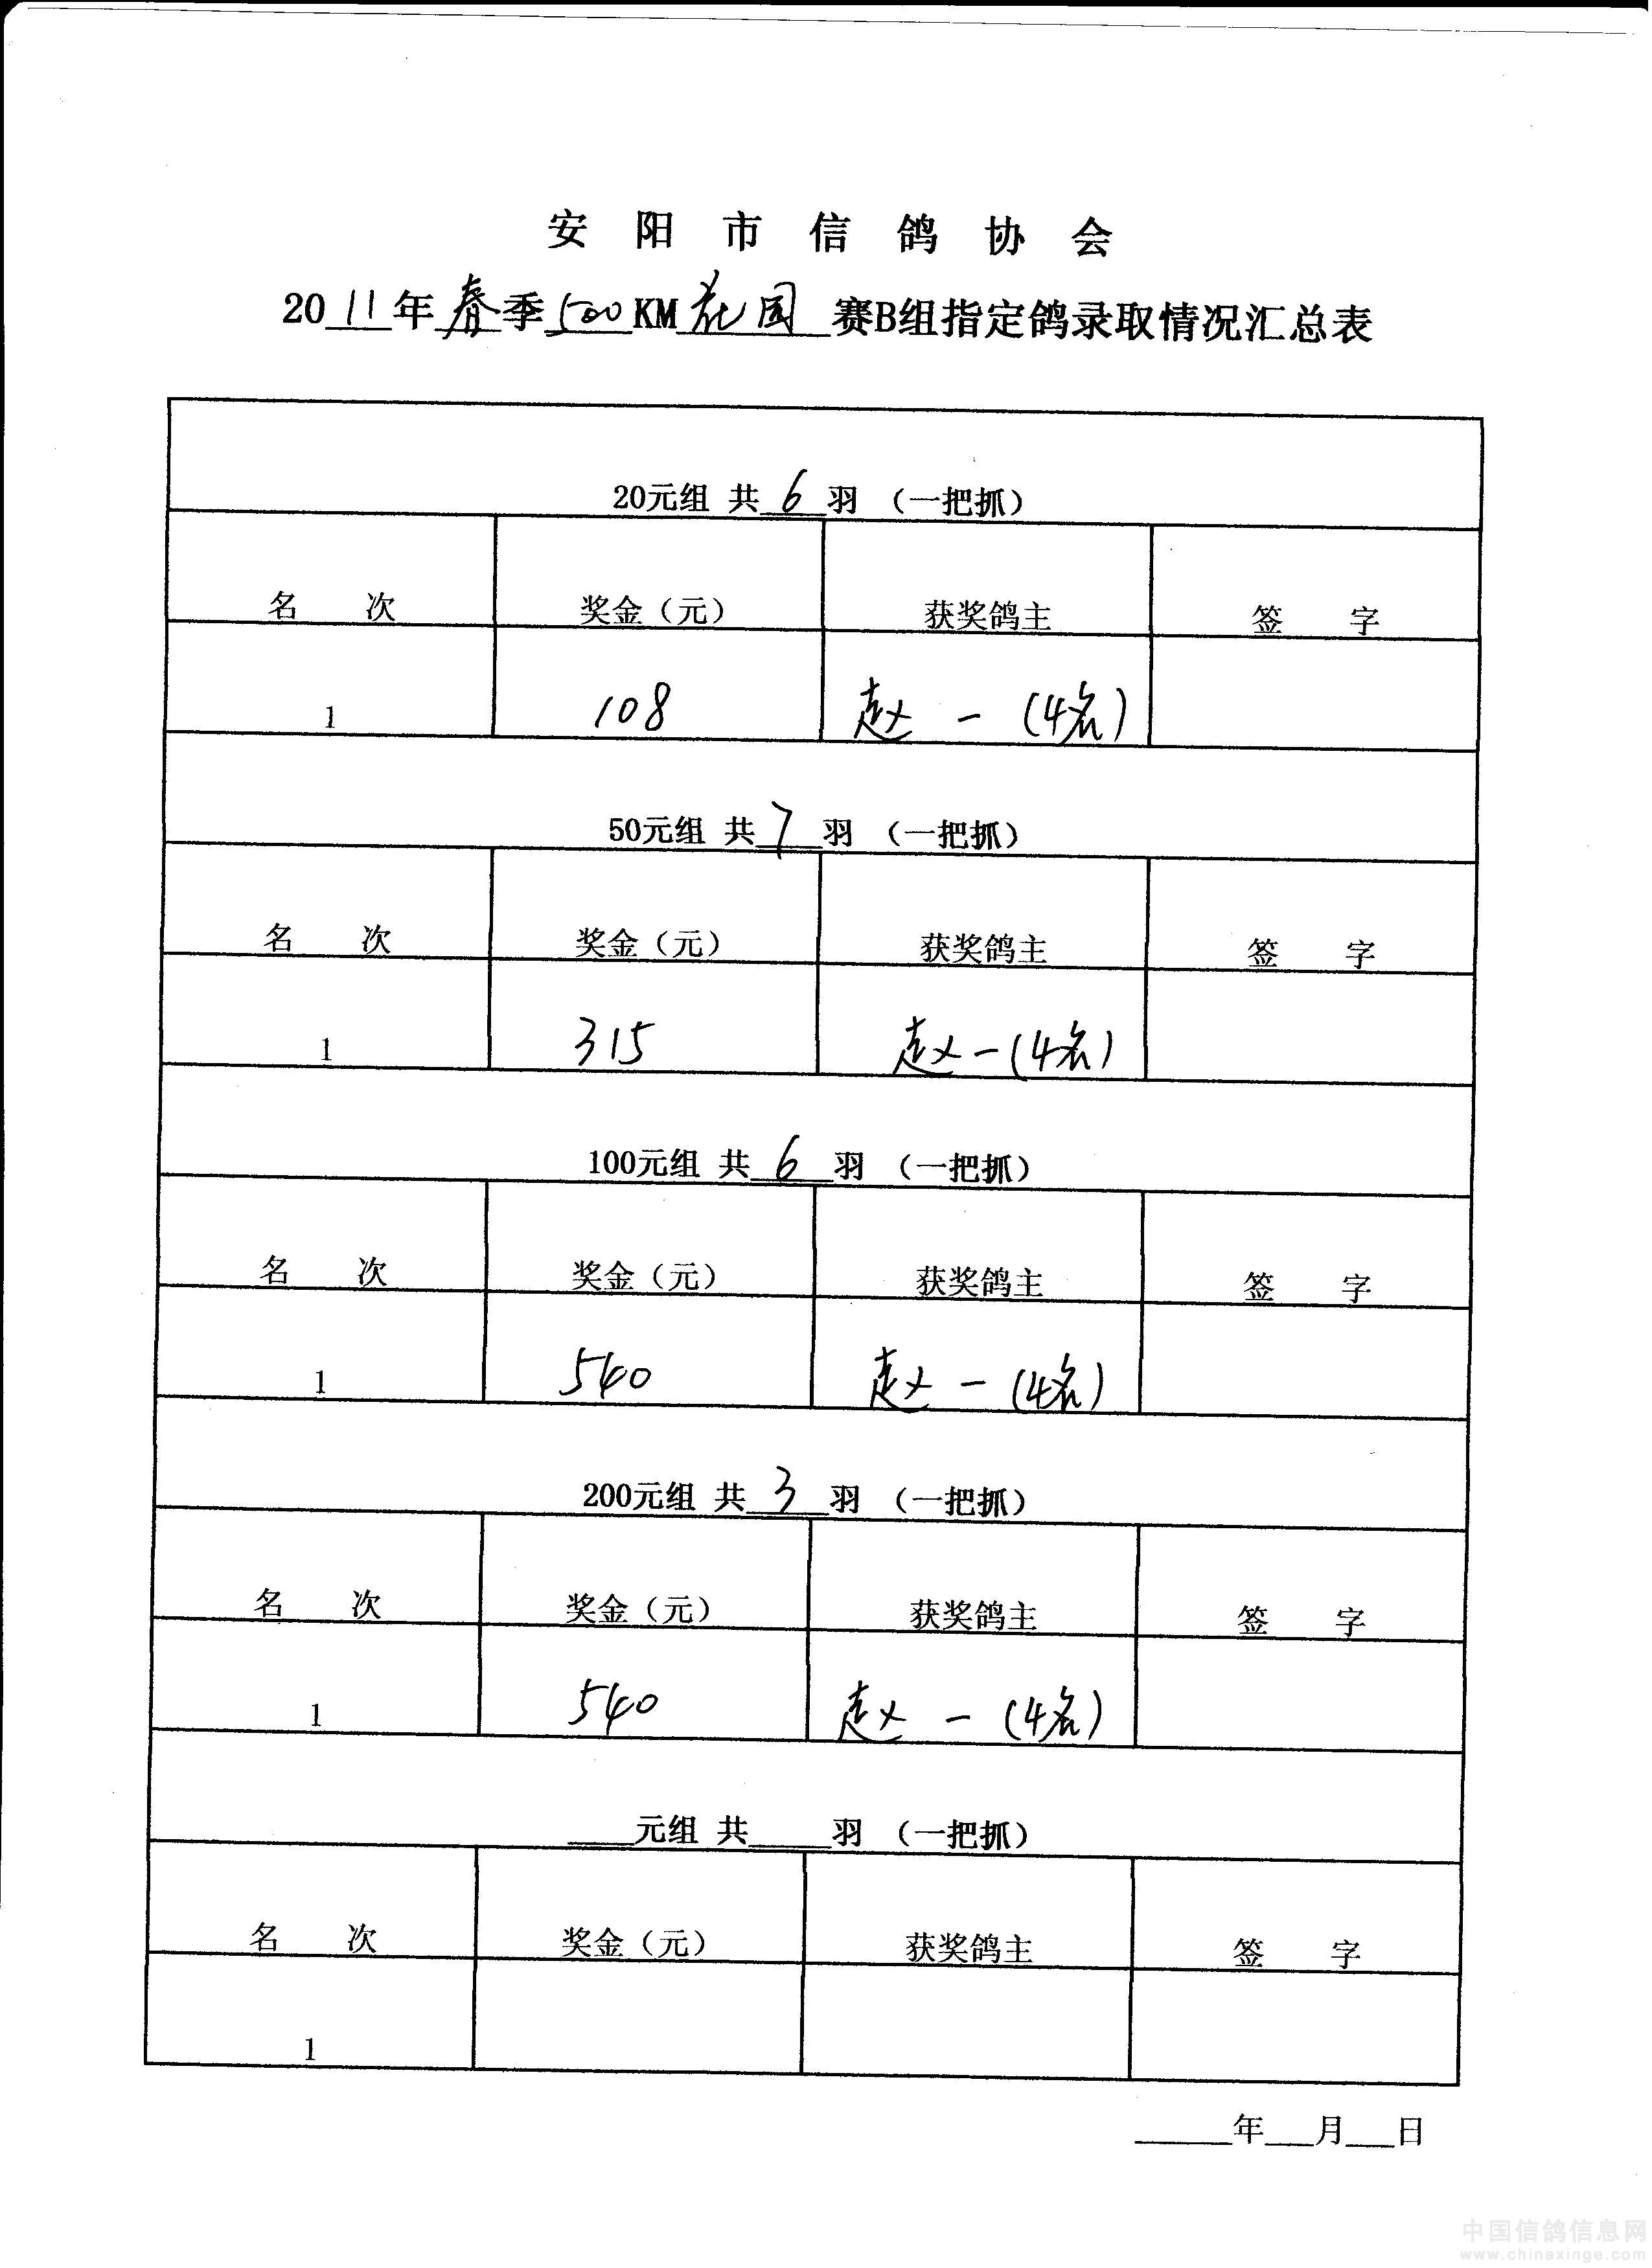 安阳市信鸽协会
2011年春季500KM花园赛B组指定鸽录取情况汇总表
20元组 共6羽 （一把抓）
名 次 奖金（元） 获奖鸽主 签 字
1 108 赵一(4名)
50元组 共7羽 （一把抓）
名 次 奖金（元） 获奖鸽主 签 字
1 315 赵一(4名)
100元组 共6羽 （一把抓）
名 次 奖金（元） 获奖鸽主 签 字
1 540 赵一(4名)
200元组 共3羽 （一把抓）
名 次 奖金（元） 获奖鸽主 签 字
1 540 赵一(4名)
____元组 共____羽 （一把抓）
名 次 奖金（元） 获奖鸽主 签 字
1
____年__月__日
中国信鸽信息网
www.chinaxinge.com